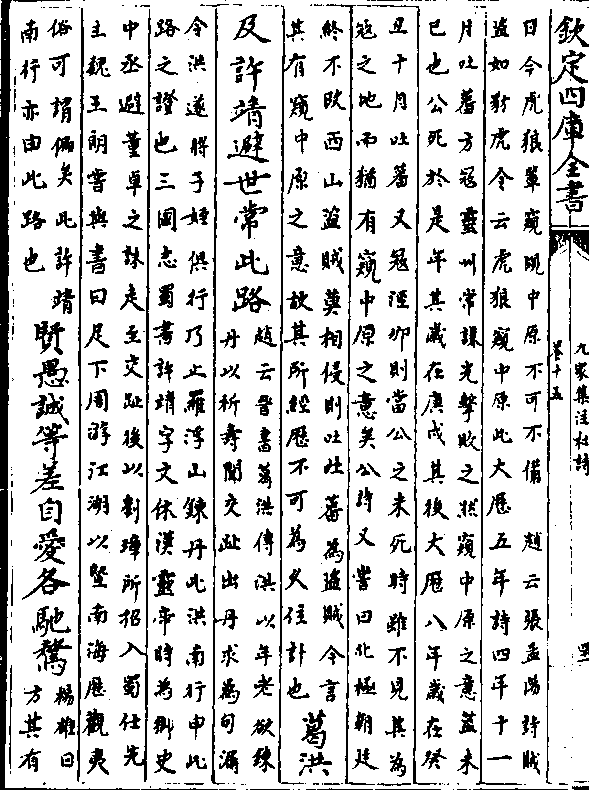 欽定四庫全書
九家集注杜詩
卷十五
曰今虎狼輩窺睨中原不可不備 趙云張孟陽詩賊
盜如豺虎今云虎狼窺中原此大歷五年詩四年十一
月吐蕃方寇靈州常謙光擊敗之然窺中原之意蓋未
已也公死於是年其歲在庚戌其後大歷八年歲在癸
丑十月吐蕃又寇涇邠則當公之未死時雖不見其為
寇之地而猶有窺中原之意矣公詩又嘗曰北極朝廷
終不改西山盜賊莫相侵則吐蕃為盜賊今言
其有窺中原之意故其所經歷不可為久住計也 葛洪
及許靖避世常此路 趙云晉書葛洪傳洪以年老欲鍊
丹以祈壽聞交趾出丹求為句漏
令洪遂將子姪俱行乃止羅浮山鍊丹此洪南行由此
路之證也三國志蜀書許靖字文休漢靈帝時為御史
中丞避董卓之誅走至交趾後以劉璋所招入蜀仕先
主魏王朗嘗與書曰足下周游江湖以暨南海歷觀夷
俗可謂偏矣此許靖
南行亦由此路也 賢愚誠等差自愛各馳騖 楊雄曰
方其有